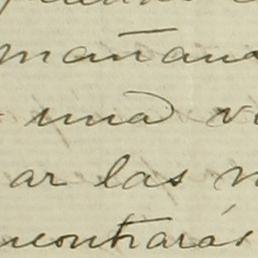 mañana
una v
ar las v
ncontrarás